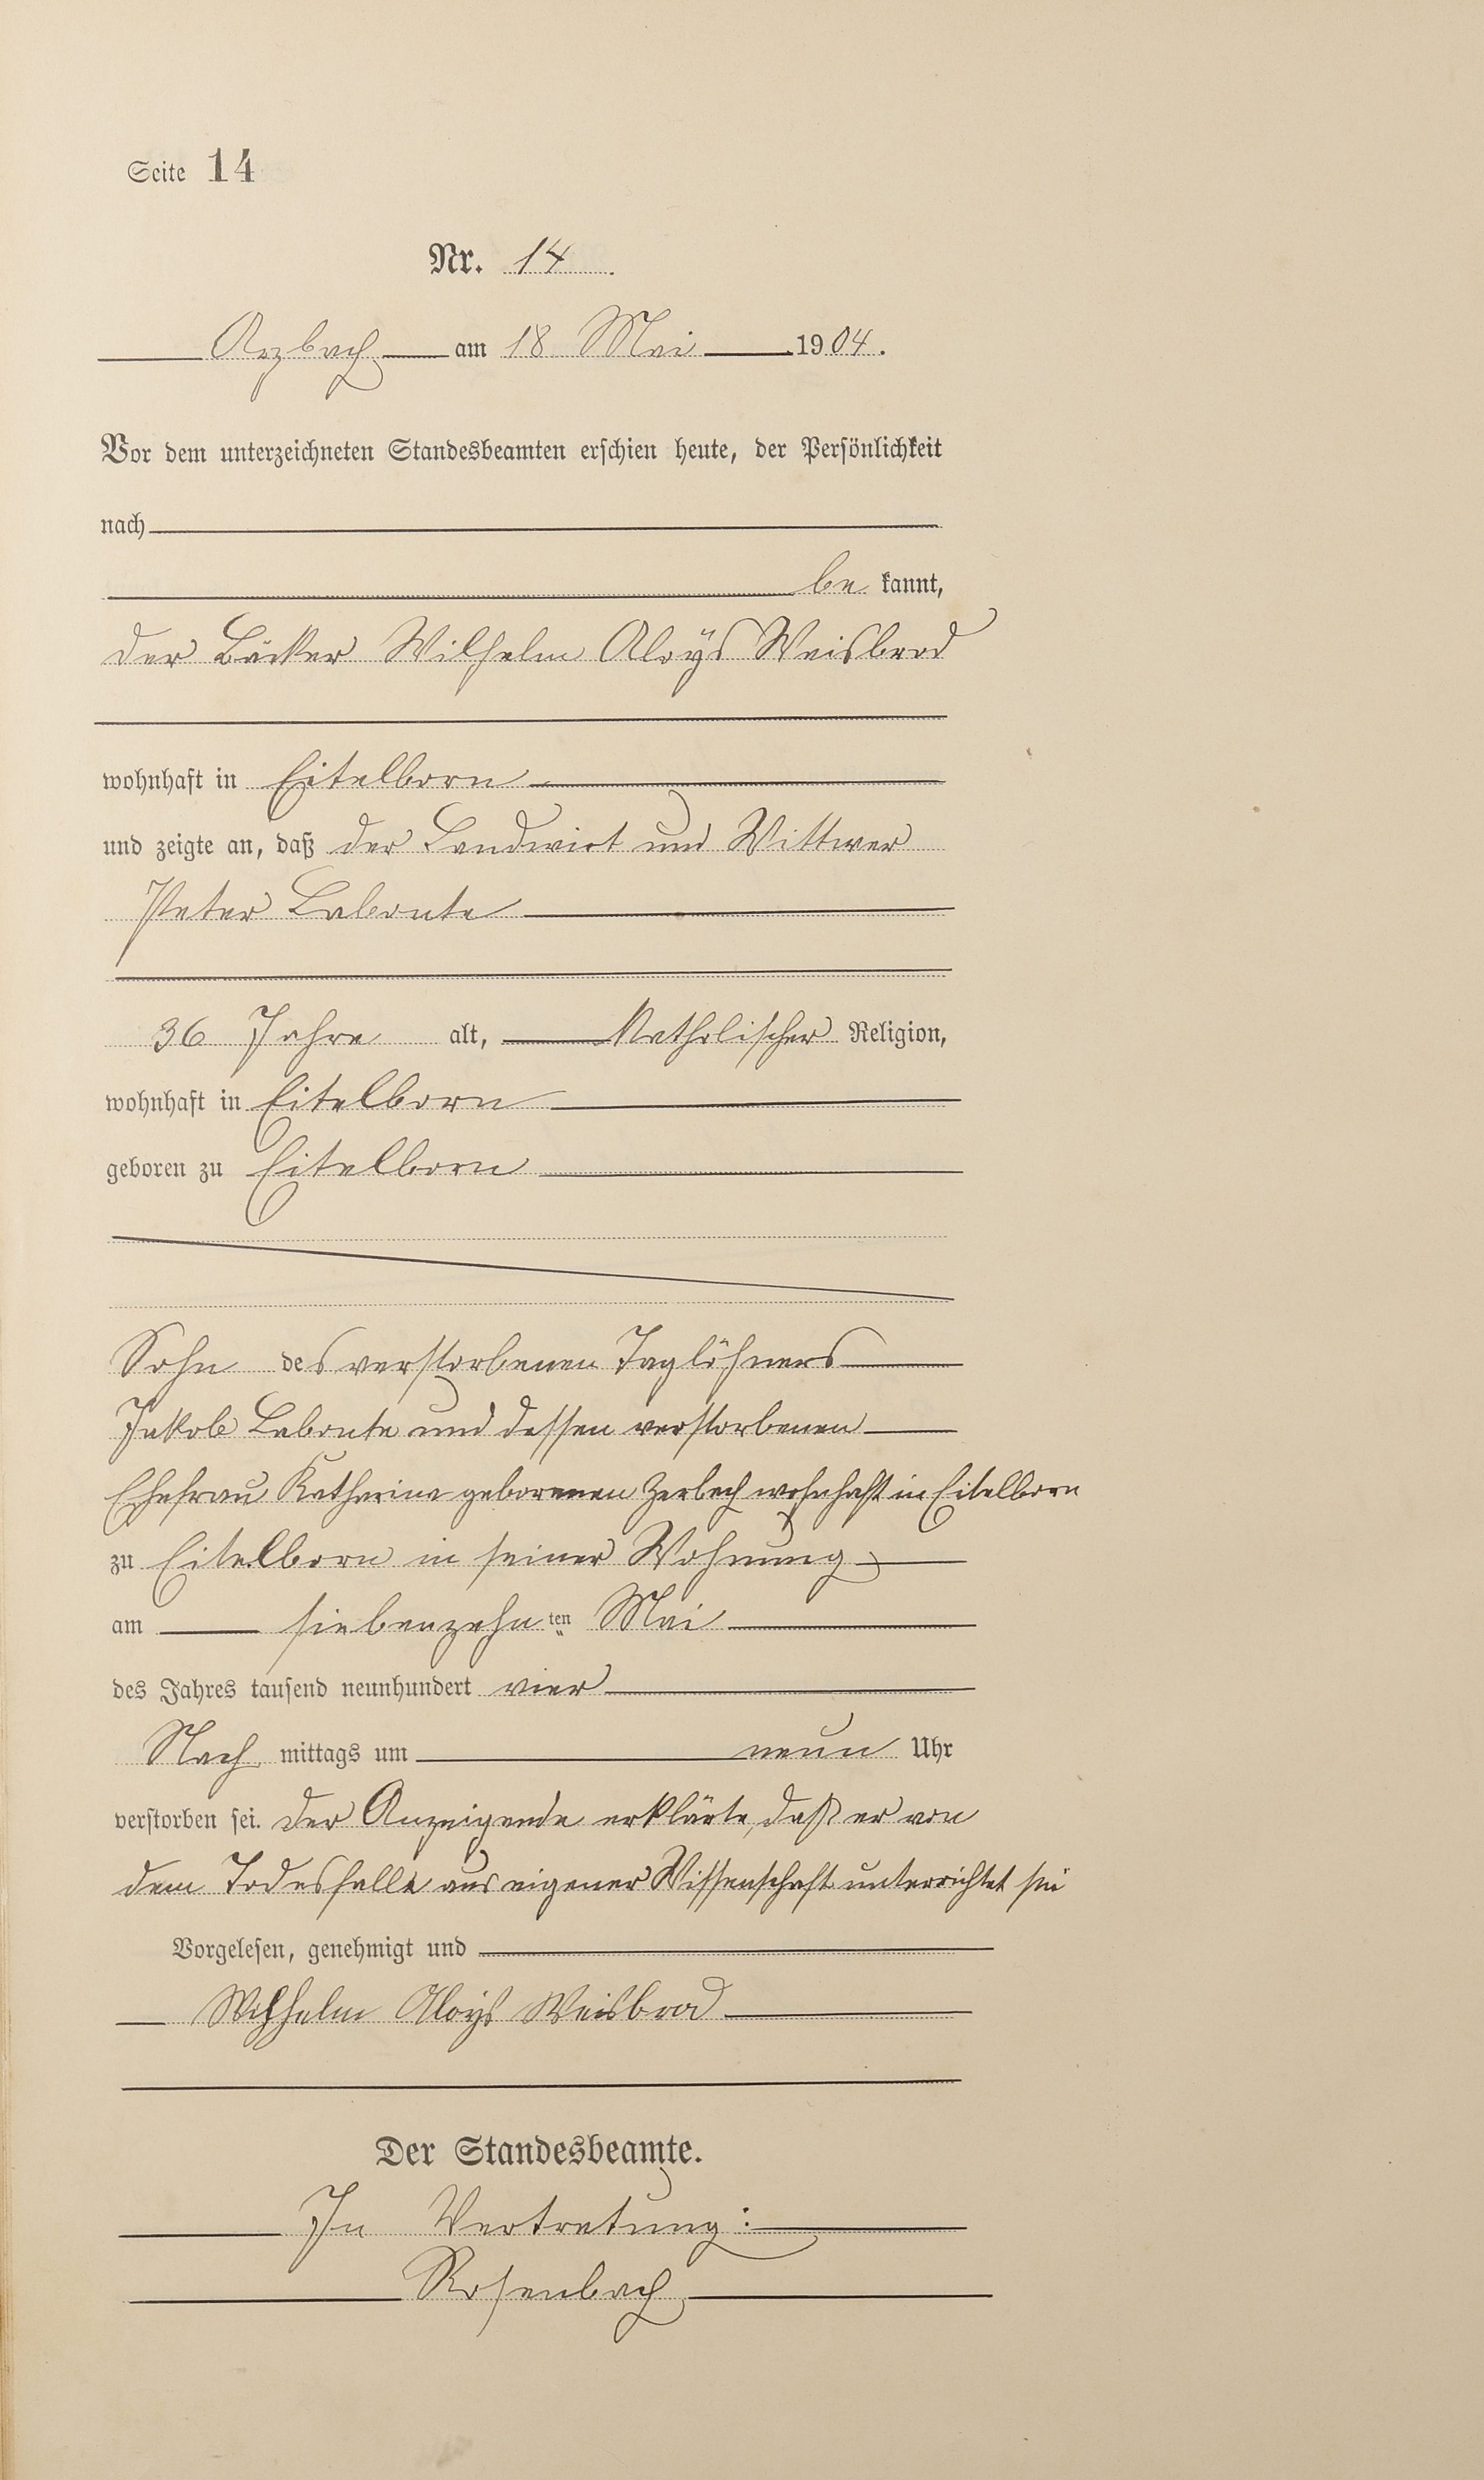 Seite 14
Nr. 14
Arzbach am 18 Mai 1904.
Vor dem unterzeichneten Standesbeamten erschien heute, der Persönlichkeit
nach
be kannt,
der Bäcker Wilhelm Aloÿs Weisbrod
wohnhaft in Eitelborn
und zeigte an, daß der Landwirt und Wittwer
Peter Labonte
36 Jahre alt, Katholischer Religion,
wohnhaft in Eitelborn
geboren zu Eitelborn
Sohn des verstorbenen Taglöhners
Jakob Labonte und dessen verstorbenen
Ehefrau Katharina geborenen Zerbach wohnhaft in Eitelborn
zu Eitelborn in seiner Wohnung
am siebenzehn ten Mai
des Jahres tausend neunhundert vier
Nach mittags um neun Uhr
verstorben sei. Der Anzeigende erklärte, daß er von
dem Todesfalle aus eigener Wissenschaft unterrichtet sei
Vorgelesen, genehmigt und
Wilhelm Aloÿs Weisbrod
Der Standesbeamte.
In Vertretung:
Rosenbach